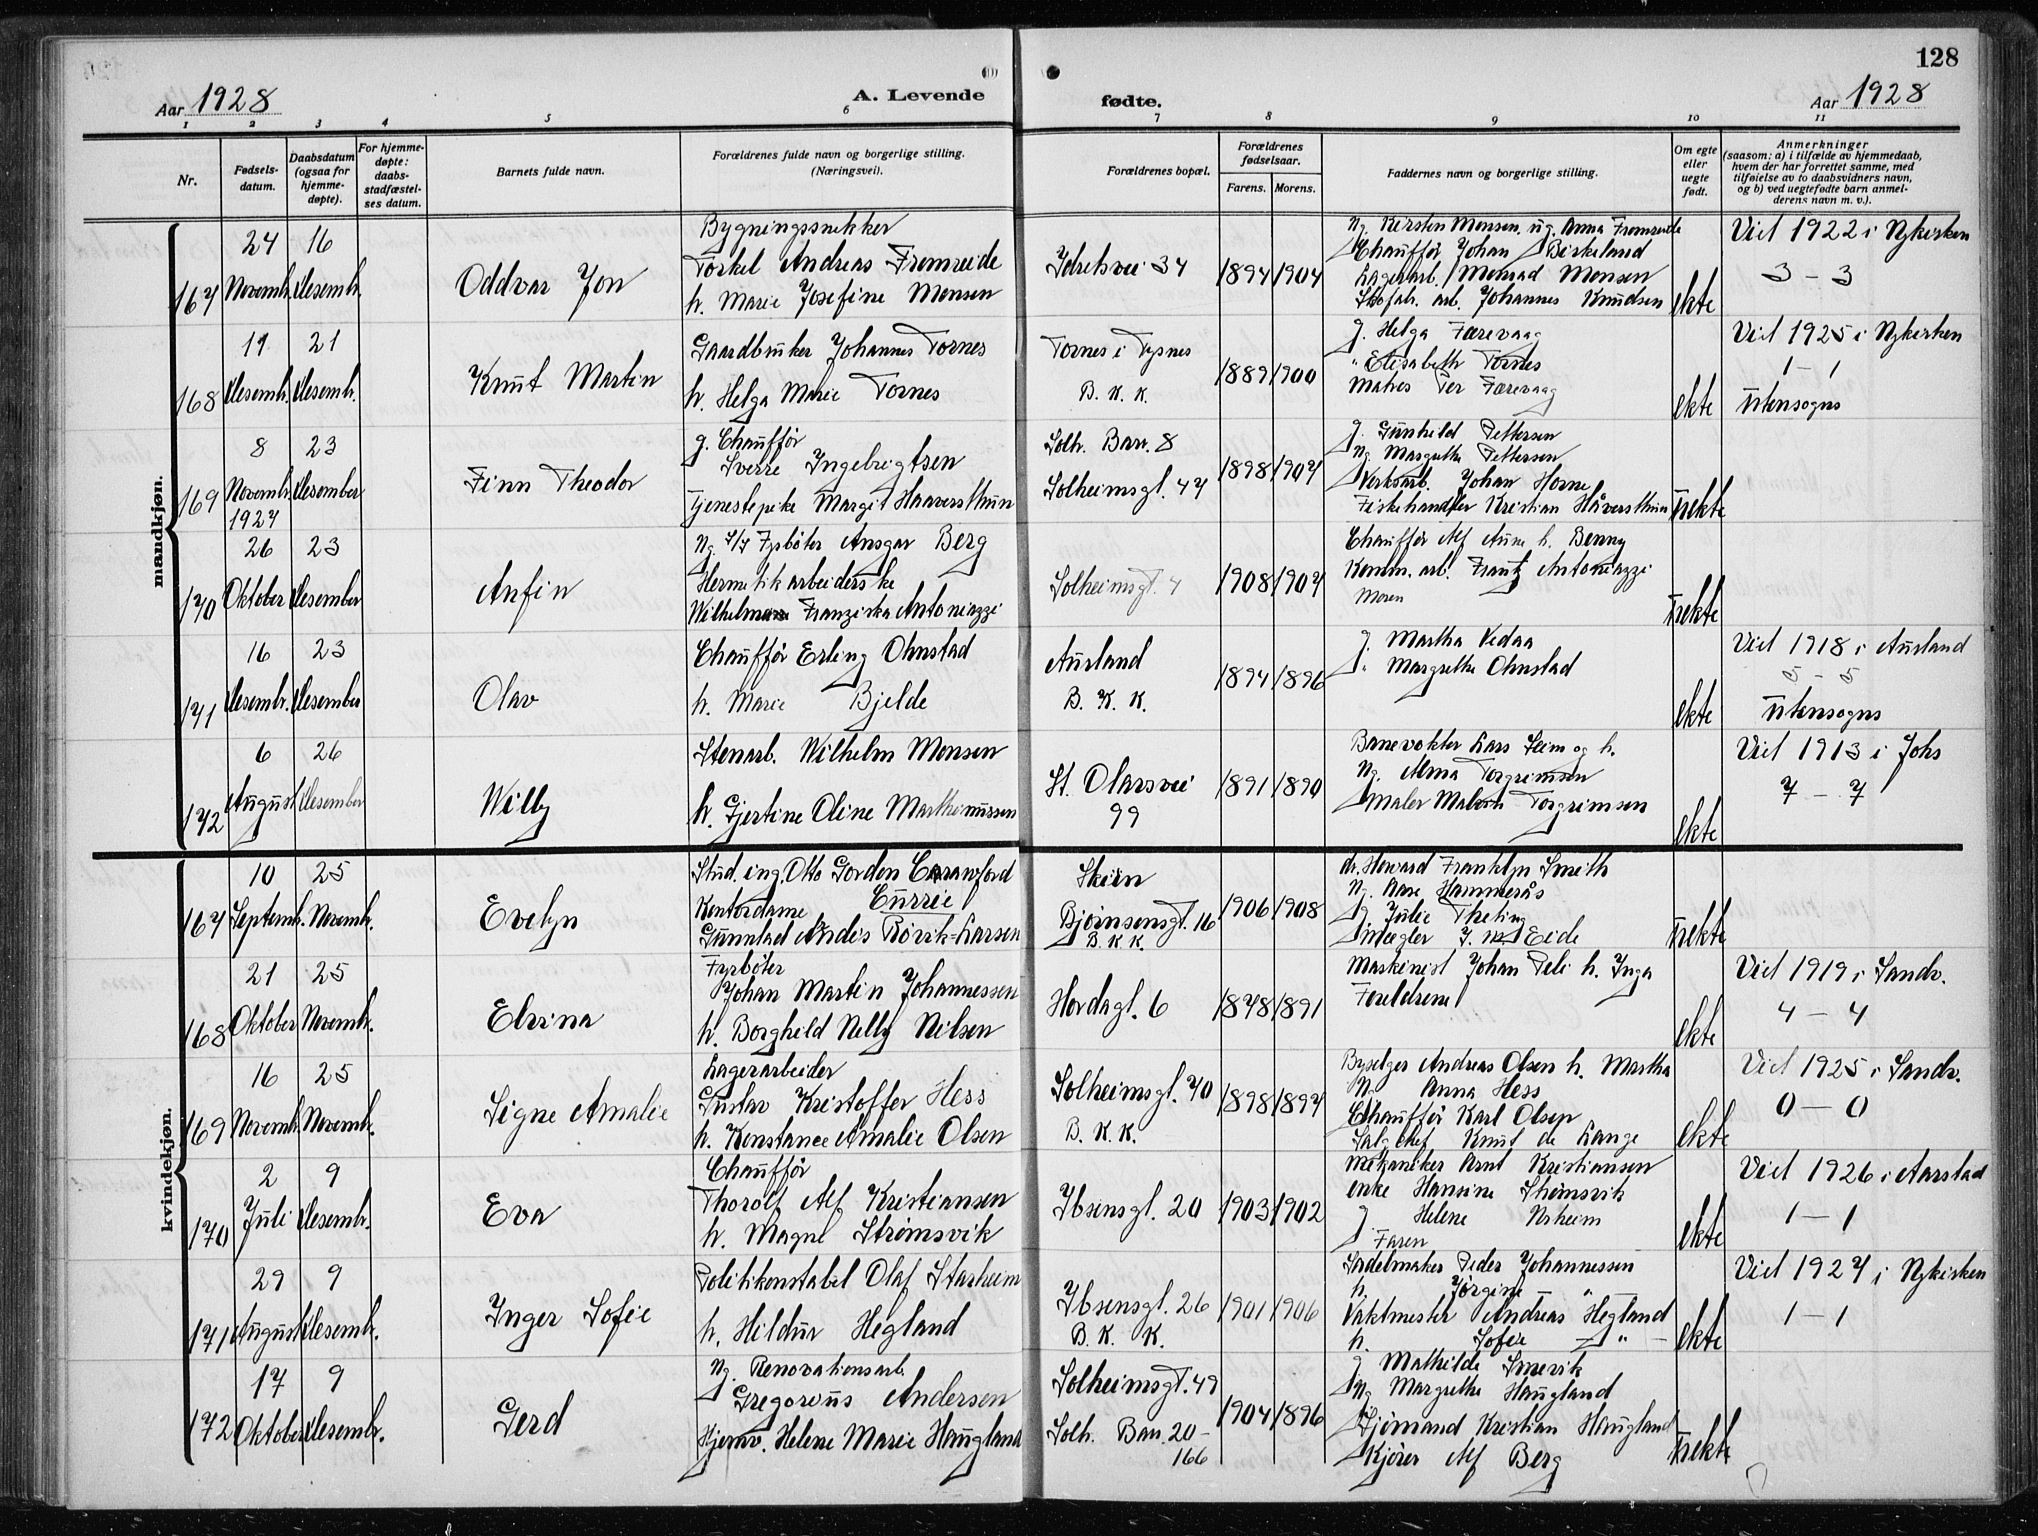 128
Aar 1928
A. Levende
fødte.
Aar 1928
1 2 3 4 5 6 7 8 9 10 11
Nr.
Fødsels-
datum.
Daabsdatum
(ogsaa for
hjemme-
døpte).
For hjemme-
døpte:
daabs-
stadfæstel-
ses datum.
Barnets fulde navn.
Forældrenes fulde navn og borgerlige stilling.
(Næringsvei).
Forældrenes bopæl.
Forældrenes
fødselsaar.
Farens. Morens.
Faddernes navn og borgerlige stilling.
Om egte
eller
uegte
født.
Anmerkninger
(saasom: a) i tilfælde av hjemmedaab,
hvem der har forrettet samme, med
tilføielse av to daabsvidners navn,
og b) ved uegtefødte barn anmel-
derens navn m. v.).
mandkjøn.
167
24 Novembr.
16 Desembr.
Oddvar Jon
Bygningssnikker
Torkel Andreas Fromreide
h. Marie Josefine Monsen
Idretsvei 34
1894 1904
Ng. Kirsten Monsen, ug. Anna Fromreide
Chauffør Johan Birkeland
Lagerarb. Monrad Monsen
Skofabr. arb. Johannes Knudsen
ekte
Viet 1922 i Nykirken
3 – 3
168
11 Desembr.
21 Desembr.
Knut Martin
Gaardbruker Johannes Tornes
h. Helga Marie Tornes
Tornes i Tysnes
B. K. K.
1889 1900
g. Helga Færevaag
" Elisabeth Tornes
Matros Per Færevaag
ekte
Viet 1925 i Nykirken
1 – 1
Utensogns
169
8 Novembr. 1927
23 Desember
Finn Theodor
g. Chauffør
Sverre Ingebrigtsen
Tjenestepike Margit Haaversthun
Solh. Barr. 8
Solheimsgt. 47
1898 1907
g. Gunhild Pettersen
Ng. Margrethe Pettersen
Verksarb. Johan Horne
Fiskehandler Kristian Håversthun
Uekte
170
26 Oktober
23 Desember
Anfin
Ng. Fyrbøter Ansgar Berg
Hermetikarbeiderske
Wilhelmine Franziska Antoniazzi
Solheimsgt. 4
1908 1907
Chauffør Alf Aune h. Benny
Komm. arb. Frantz Antoniazzi
Moren
Uekte
171
16 Desembr.
23 Desember
Olav
Chauffør Erling Ohnstad
h. Marie Bjelde
Aurland
B. K. K.
1894 1896
g. Martha Vedaa
" Margrethe Ohnstad
ekte
Viet 1918 i Aurland
5 – 5
Utensogns
172
6 August
26 Desember
Willy
Stenarb. Wilhelm Monsen
h. Gjertine Oline Marthinussen
St. Olavsvei
99
1891 1890
Banevokter Lars Seim og h.
Ng. Alma Torgrimsen
Maler Torgrimsen
ekte
Viet 1913 i Johs
7 – 7
kvindekjøn.
167
10 Septembr.
25 Novembr.
Evelyn
Stud. ing. Otto Gordon Crawford
Currie
Kontordame
Gunnlad Andis Røvik-Larsen
Skien
Bjørnsensgt. 16
B. K. K.
1906 1908
dr. Howard Franklyn Smith
Ng. Aase Hammerås
g. Julie Theting
Mægler J. M. Eide
Uekte
168
21 Oktober
25 Novembr.
Elvina
Fyrbøter
Johan Martin Johannessen
h. Borghild Nelly Nilsen
Hordagt. 6
1878 1891
Maskinist Johan Peli h. Inga
Foreldrene
ekte
Viet 1919 i Sandv.
4 – 4
169
16 Novembr.
25 Novembr.
Signe Amalie
Lagerarbeider
Gustav Kristoffer Hess
h. Konstance Amalie Olsen
Solheimsgt. 70
B. K. K.
1898 1897
Byselger Andreas Olsen h. Martha
Ng. Anna Hess
Chauffør Karl Olsen
Salgschef Knut de Lange
ekte
Viet 1925 i Sandv.
0 – 0
170
2 Juli
9 Desembr.
Eva
Chauffør
Thorolf Alf Kristiansen
h. Magna Strømsvik
Ibsensgt. 20
1903 1902
Mekaniker Arnt Kristiansen
enke Hansine Strømsvik
g. Helene Norheim
Faren
ekte
Viet 1926 i Aarstad
1 – 1
171
29 August
9 Desembr.
Inger Sofie
Politikonstabel Olaf Starheim
h. Hildur Hegland
Ibsensgt. 26
B. K. K.
1901 1906
Sadelmaker Peder Johannessen
h. Jørgine "
Vaktmester Andreas Hegland
h. Sofie – " –
ekte
Viet 1927 i Nykirken
1 – 1
172
17 Oktober
9 Desembr.
Gerd
Ng. Renovationsarb.
Gregorius Andersen
Hjemv. Helene Marie Haugland
Solheimsgt. 49
Solh. Barr. 20–
166
1904 1896
g. Mathilde Smevik
Ng. Margrethe Haugland
Sjømand Kristian Haugland
Kjører Alf Berg
Uekte